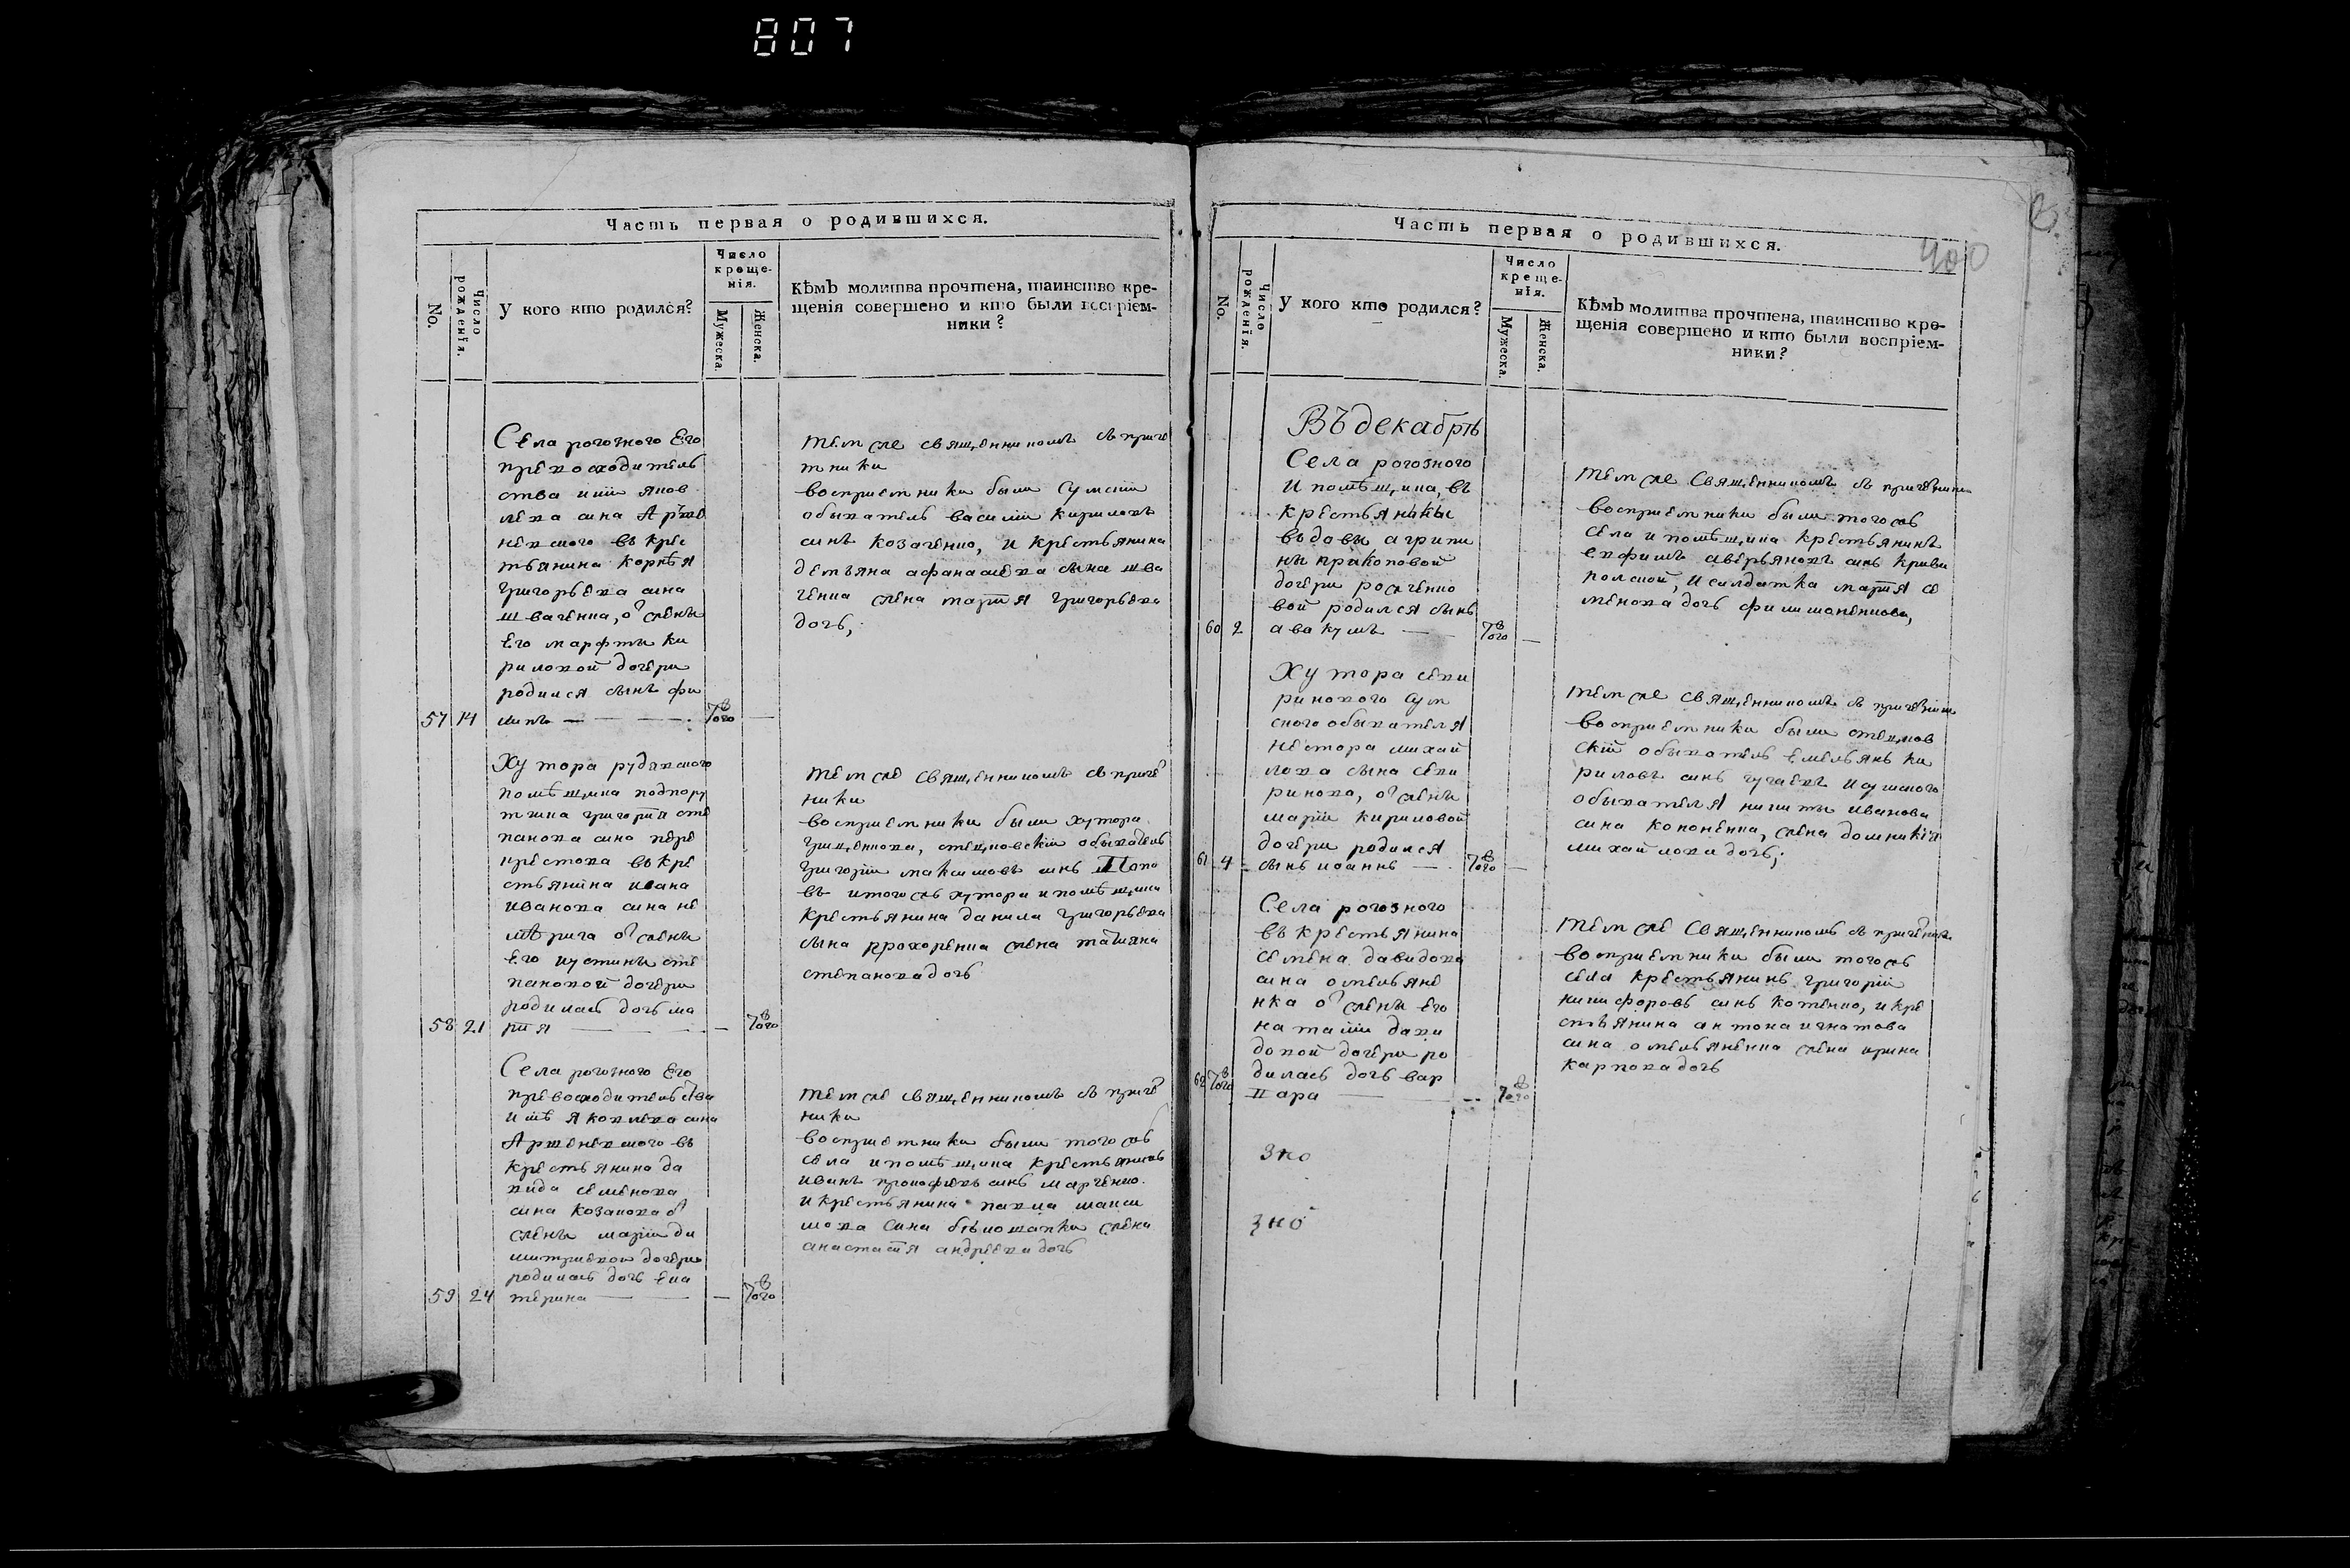 807
Часть первая о родившихся.
No.
Число рожденїя.
У кого кто родился?
Число
креще-
нія.
Мужеска.
Женска.
Кѣмъ молитва прочтена, таинство кре-
щенія совершено и кто были воспріем-
ники?
Села рогозного Его
превосходитель
ства
сина
въ крес
тьянина корнѣя
григорьева сина
швагенка, от жены
Его марфы ки
риловой догери
родился сынъ фи
57 14 липъ — — — 7
того
темже священникомъ съ приге
тники
восприемники были сумскій
обыватель василій кириловъ
синъ козагенко, и крестьянина
демъяна афанасиева сына шва
генка жена марія григорьева
догь,
Хутора рудавского
помѣщика подпору
тика григорія сте
панова сина пере
крестова въ кре
стьянина ивана
иванова сина не
от жены
Его иустины сте
пановой догери
родилась догь ма
58 21 рія — — — — того
темже священникомъ съ приге
ники
восприемники были хутора
обыватель
григорій максимовъ синъ Попо
въ итогожъ хутора и помѣщика
крестьянина данила григорьева
сына прохоренка жена татияна
степановадогь
Села рогозного Его
превосходительства
сина
въ
крестьянина да
вида семенова
сина козакова от
жены маріи ди
митриевой догери
родилась догь ека
59 24 терина — — — того
темже священникомъ съ приге
ники
восприемники были тогожъ
села и помѣщика крестьянинъ
иванъ прокофиевъ синъ маргенко.
и крестьянина павла макси
мова сина бѣлошапки жена
анастасія андреева догь
Часть первая о родившихся.
400
No.
Число рожденїя.
У кого кто родился?
Число
креще-
нія.
Мужеска.
Женска.
Кѣмъ молитва прочтена, таинство кре-
щенія совершено и кто были воспріем-
ники?
Въ декабрѣ
Села рогозного
и помѣщика, въ
крестьянки
вдовы агрипи
ны прокоповой
догери
вой родился сынъ
60 2 авакумъ — того —
темже священникомъ съ пригетники
восприемники были тогожъ
села и помѣщика крестьянинъ
ефимъ аверьяновъ синъ криви
полской, и салдатка марія се
менова догь филимоненкова,
Хутора секи
ринового сум
ского обывателя
нестора михай
лова сына секи
ринова, от жены
маріи кириловой
догери родился
61 4 сынъ иоаннъ — того —
темже священникомъ съ пригетники
восприемники были стецков
скій обыватель емельянъ ки
риловъ синъ и сумского
обывателя никиты иванова
сина кононенка, жена домникія
михайлова догь;
Села рогозного
въ крестьянина
семена давидова
сина омельяне
нка от жены Его
наталіи дави
довой догери ро
62 того дилась догь вар
вара — — того
темже священникомъ съ пригетники
восприемники были тогожъ
села крестьянинъ григорій
никифоровъ синъ котенко, и кре
стьянина антона игнатова
сина омельяненка жена ирина
карповадогь